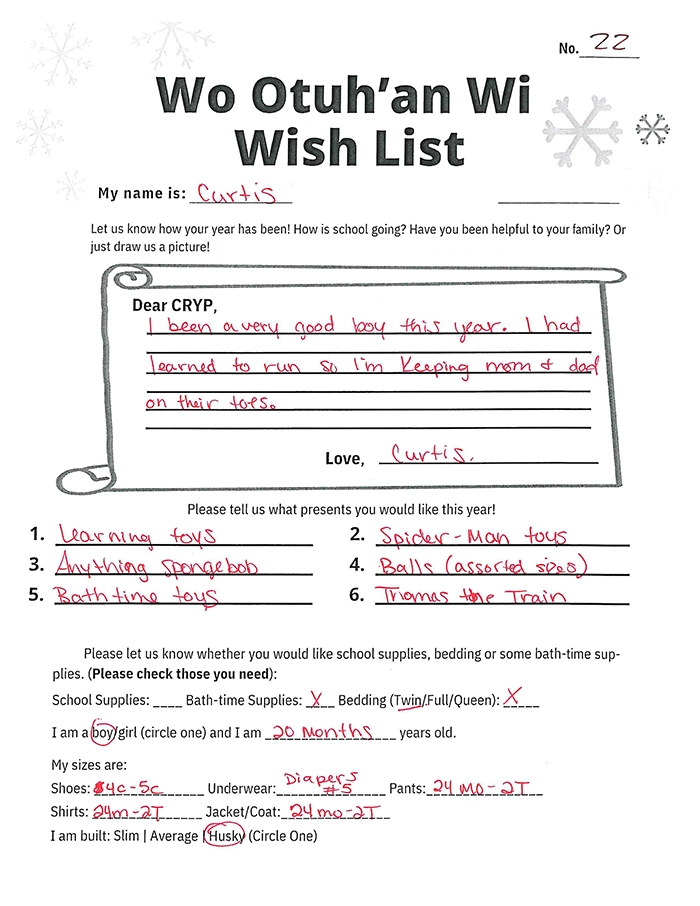 No. 22
Wo Otuh'an Wi
Wish List
My name is: Curtis
Let us know how your year has been! How is school going? Have you been helpful to your family? Or
just draw us a picture!
Dear CRYP,
I been a very good boy this year. I had
learned to run so I'm Keeping mom & dad
on their toes.
Love, Curtis.
Please tell us what presents you would like this year!
1. Learning toys
2. Spider-Man toys
3. Anything spongebob
4. Balls (assorted sizes)
5. Bath time toys
6. Thomas the Train
Please let us know whether you would like school supplies, bedding or some bath-time sup-
plies. (Please check those you need):
School Supplies: ____ Bath-time Supplies: _X__ Bedding (Twin/Full/Queen): _X___
I am a boy/girl (circle one) and I am 20 Months years old.
My sizes are:
Shoes: 4c-5c Underwear: Diapers #5 Pants: 24 MO-2T
Shirts: 24m-2T Jacket/Coat: 24mo-2T
I am built: Slim | Average | Husky (Circle One)